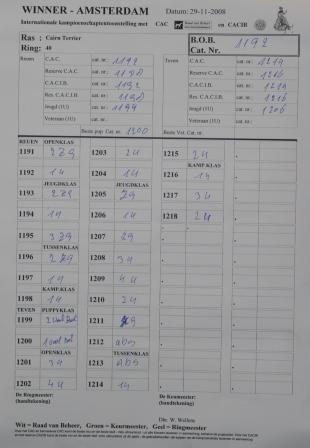 WINNER - AMSTERDAM Datum: 29-11-2008
Internationale kampioenschapstentoonstelling met CAC en CACIB
Ras : Cairn Terrier
Ring: 40
B.O.B.
Cat. Nr. 1192
Reuen C.A.C. cat. nr.: 1192 C.A.C. cat. nr.: 1214
Reserve C.A.C. cat. nr.: Reserve C.A.C. cat. nr.: 1216
C.A.C.I.B. cat. nr.: 1192 C.A.C.I.B. cat. nr.:
Res. C.A.C.I.B. cat. nr.: Res. C.A.C.I.B. cat. nr.: 1216
Jeugd (1U) cat. nr.: 1194 Jeugd (1U) cat. nr.: 1206
Veteraan (1U) cat. nr.: Veteraan (1U) cat. nr.:
Beste pup Cat. nr. 1200 Beste Vet. Cat. nr.
REUEN OPENKLAS
1191 2 ZG 1203 2 U 1215 2 U
KAMP.KLAS
1192 1 U 1204 1 U 1216 1 U
JEUGDKLAS JEUGDKLAS
1193 2 ZG 1205 ZG 1217 3 U
1194 1 U 1206 1 U 1218 2 U
1195 3 ZG 1207 ZG
TUSSENKLAS
1196 2 ZG 1208 3 U
1197 1 U 1209 4 U
KAMP.KLAS
1198 1 U 1210 2 U
TEVEN PUPPYKLAS
1199 1211
1200 1212 abs
OPENKLAS TUSSENKLAS
1201 3 U 1213 abs
1202 4 U 1214 1 U
De Ringmeester: De Keurmeester:
(handtekening) (handtekening)
Dhr. W. Wellens
Wit = Raad van Beheer, Groen = Keurmeester, Geel = Ringmeester